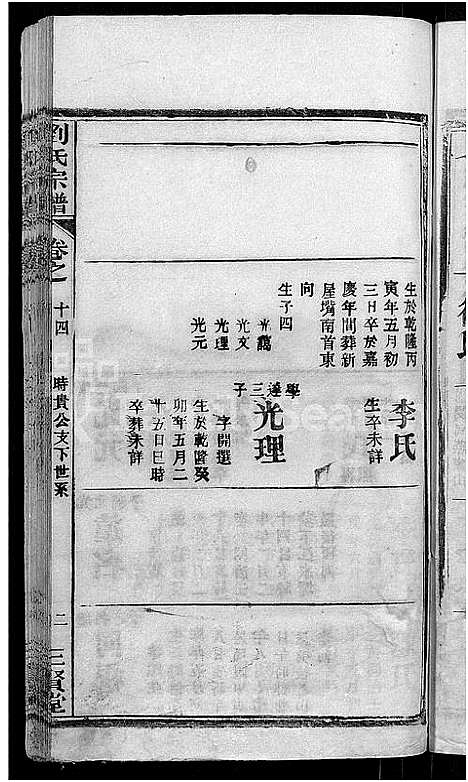 生於乾隆丙
寅年五月初
三日卒於嘉
慶年間葬新
屋塲南首東
向
生子四
光萬
光文
光理
光元
李氏
生卒未詳
學達三子
光理
字開選
生於乾隆癸
卯年五月二
十五日巳時
卒葬未詳
劉氏宗譜
卷之十四
時貴公支下世系
二
三賢堂